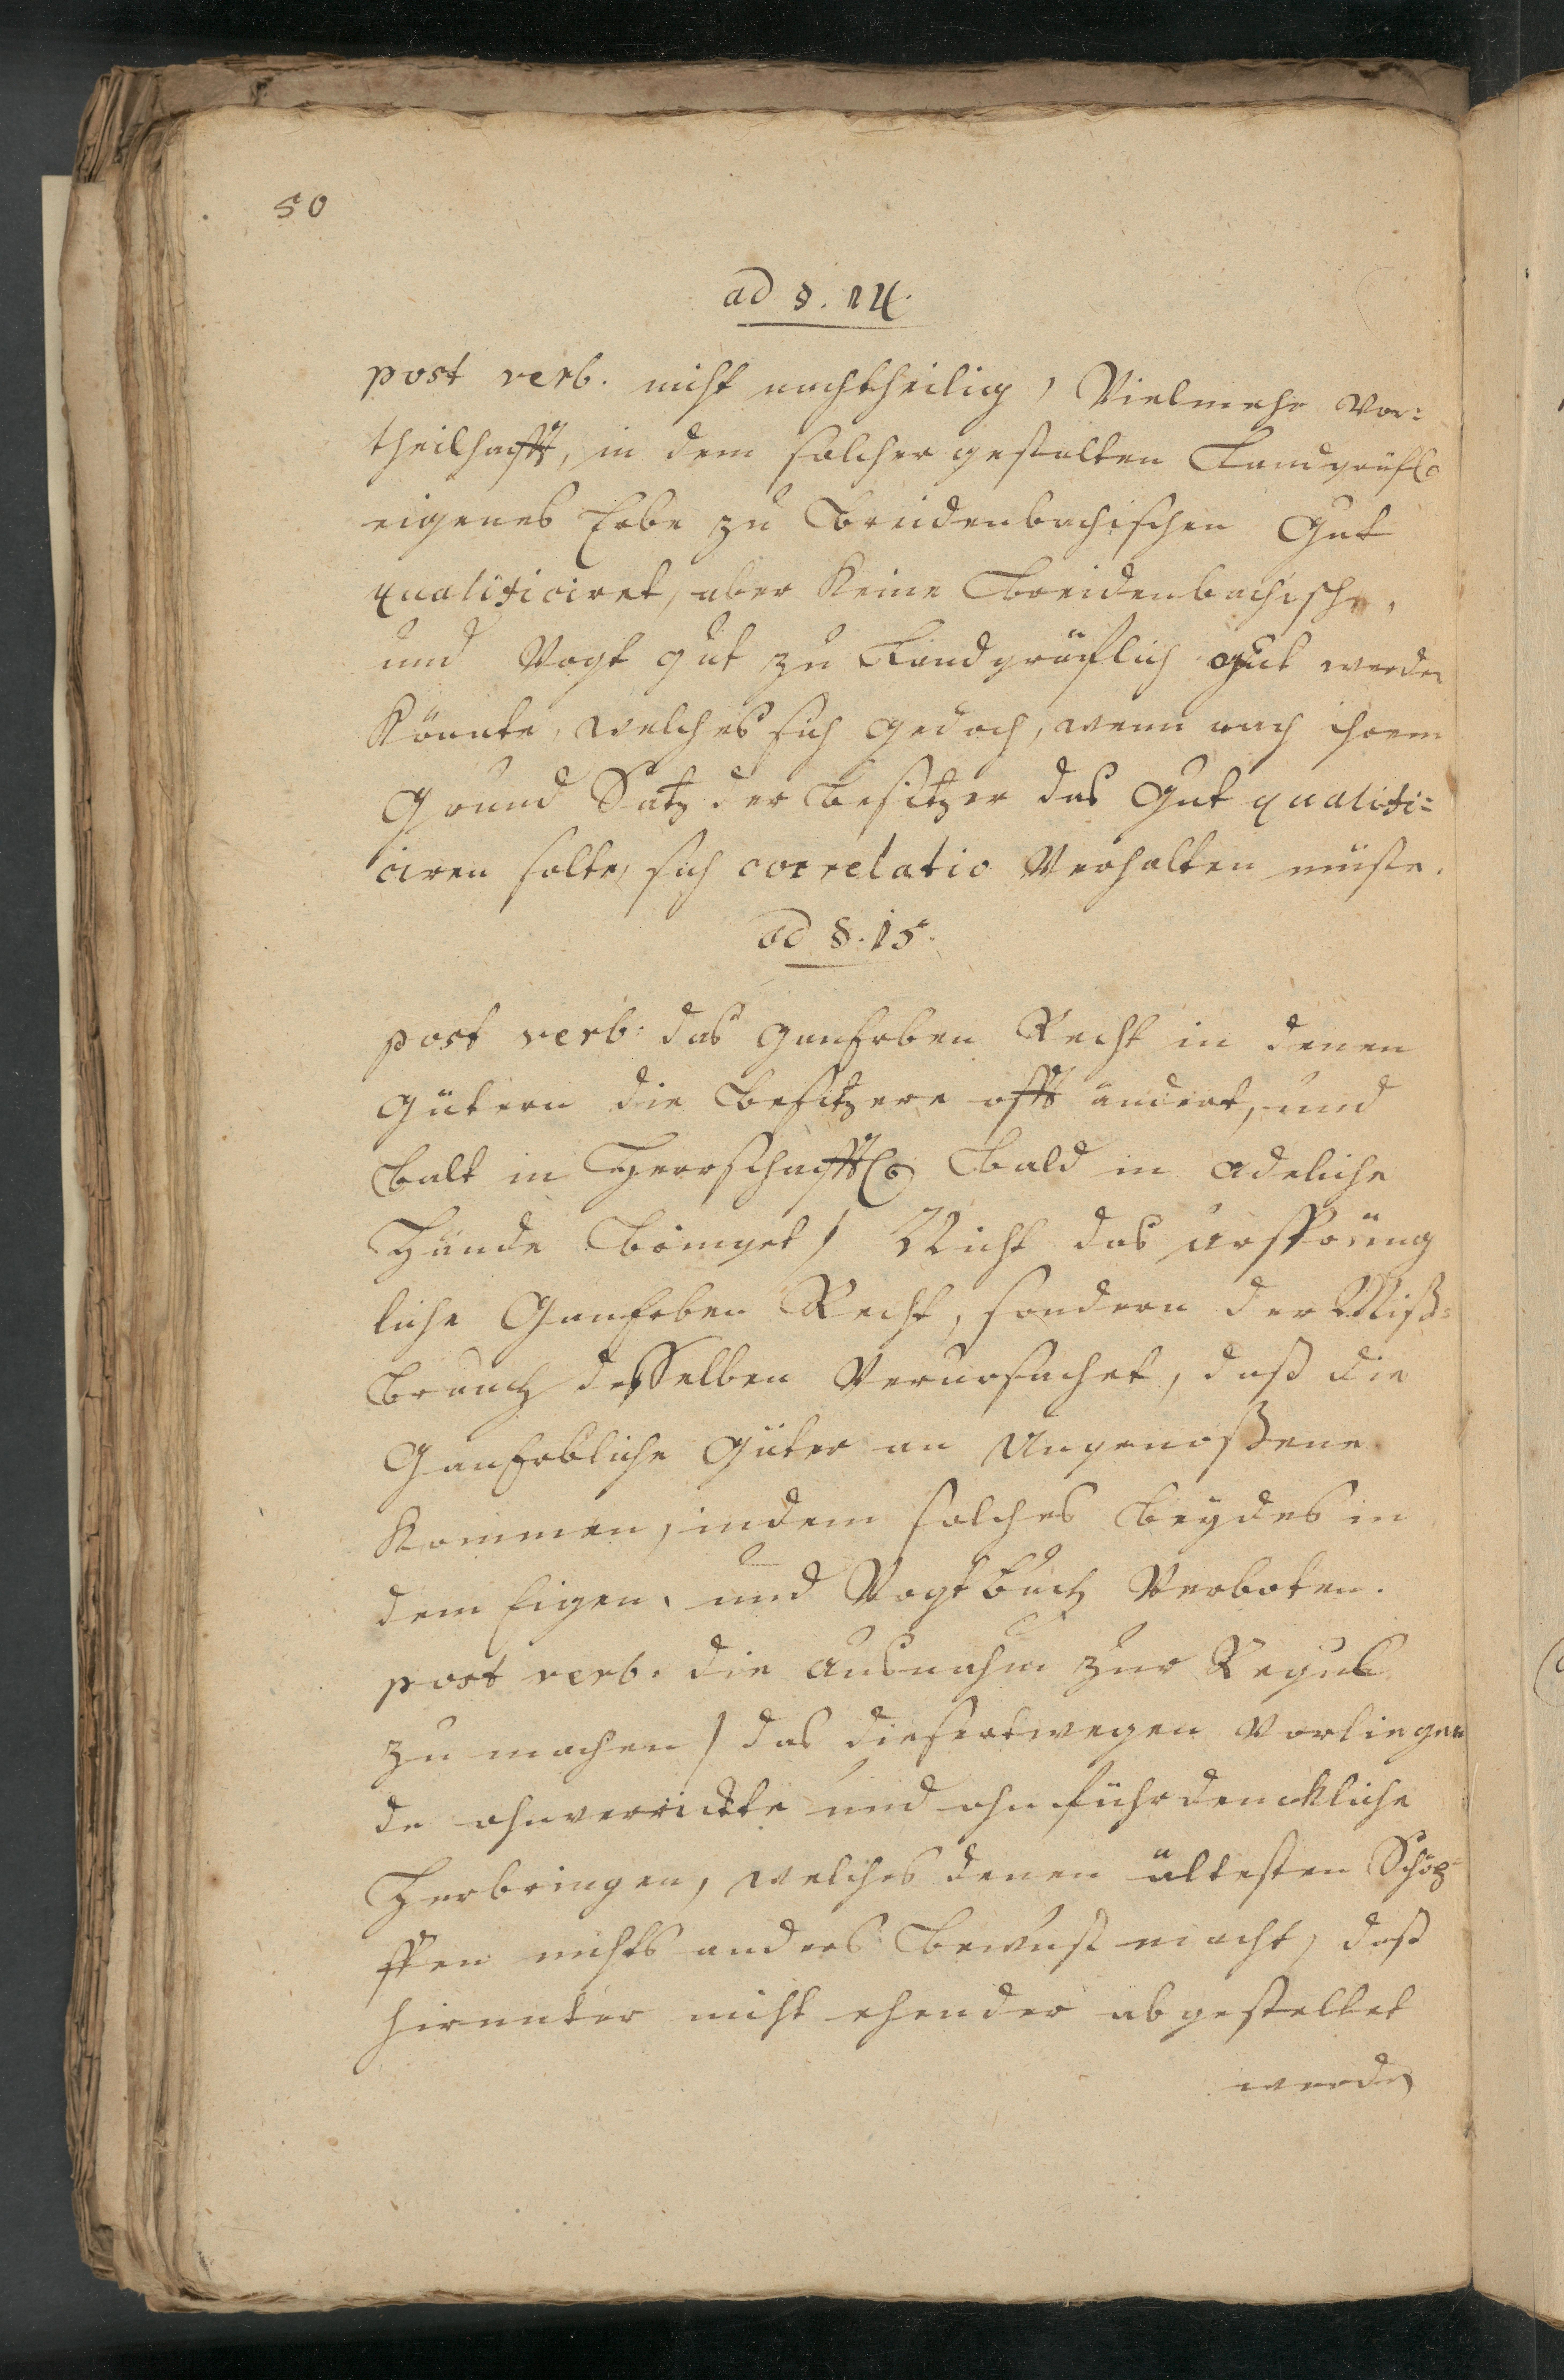 50
ad §. 14.
post verb. nicht nachtheilig, Vielmehr vor:
theilhafft, in dem solcher gestalten Landgräfl.
eigenes Erbe zu Breidenbachischen Gut
qualificiret, aber Keine Breidenbachische,
und Vogt gut zu Landgräflich gut werden
Könnte, welches sich gedoch, wenn nach ihrem
Grund Satz der Besitzer das Gut qualifi=
ciren solte, sich correlatio Verhalten müste.
ad §. 15.
post verb: das ganErben Recht in denen
gütern die Besitzere offt ändert, und
Balt in Herrschafftl. Bald in adeliche
Hände Bringet / Nicht das ursprüng
liche GanErben Recht, sondern der Miß=
Brauch desselben Verursachet, daß die
GanErbliche Güter an Ungenoßene
Kommen, indem solches Beydes in
dem Eigen, und Vogtbuch Verboten.
post verb. die Ausnahm zur Regul
zu machen / das diesertwegen Vorliegen
de ohnverrückte und ohnfürdenckliche
Herbringen, welches denen ältesten Schöp
ffen nichts anders Bewust macht, daß
hirunter nicht ehender abgestellet
werden